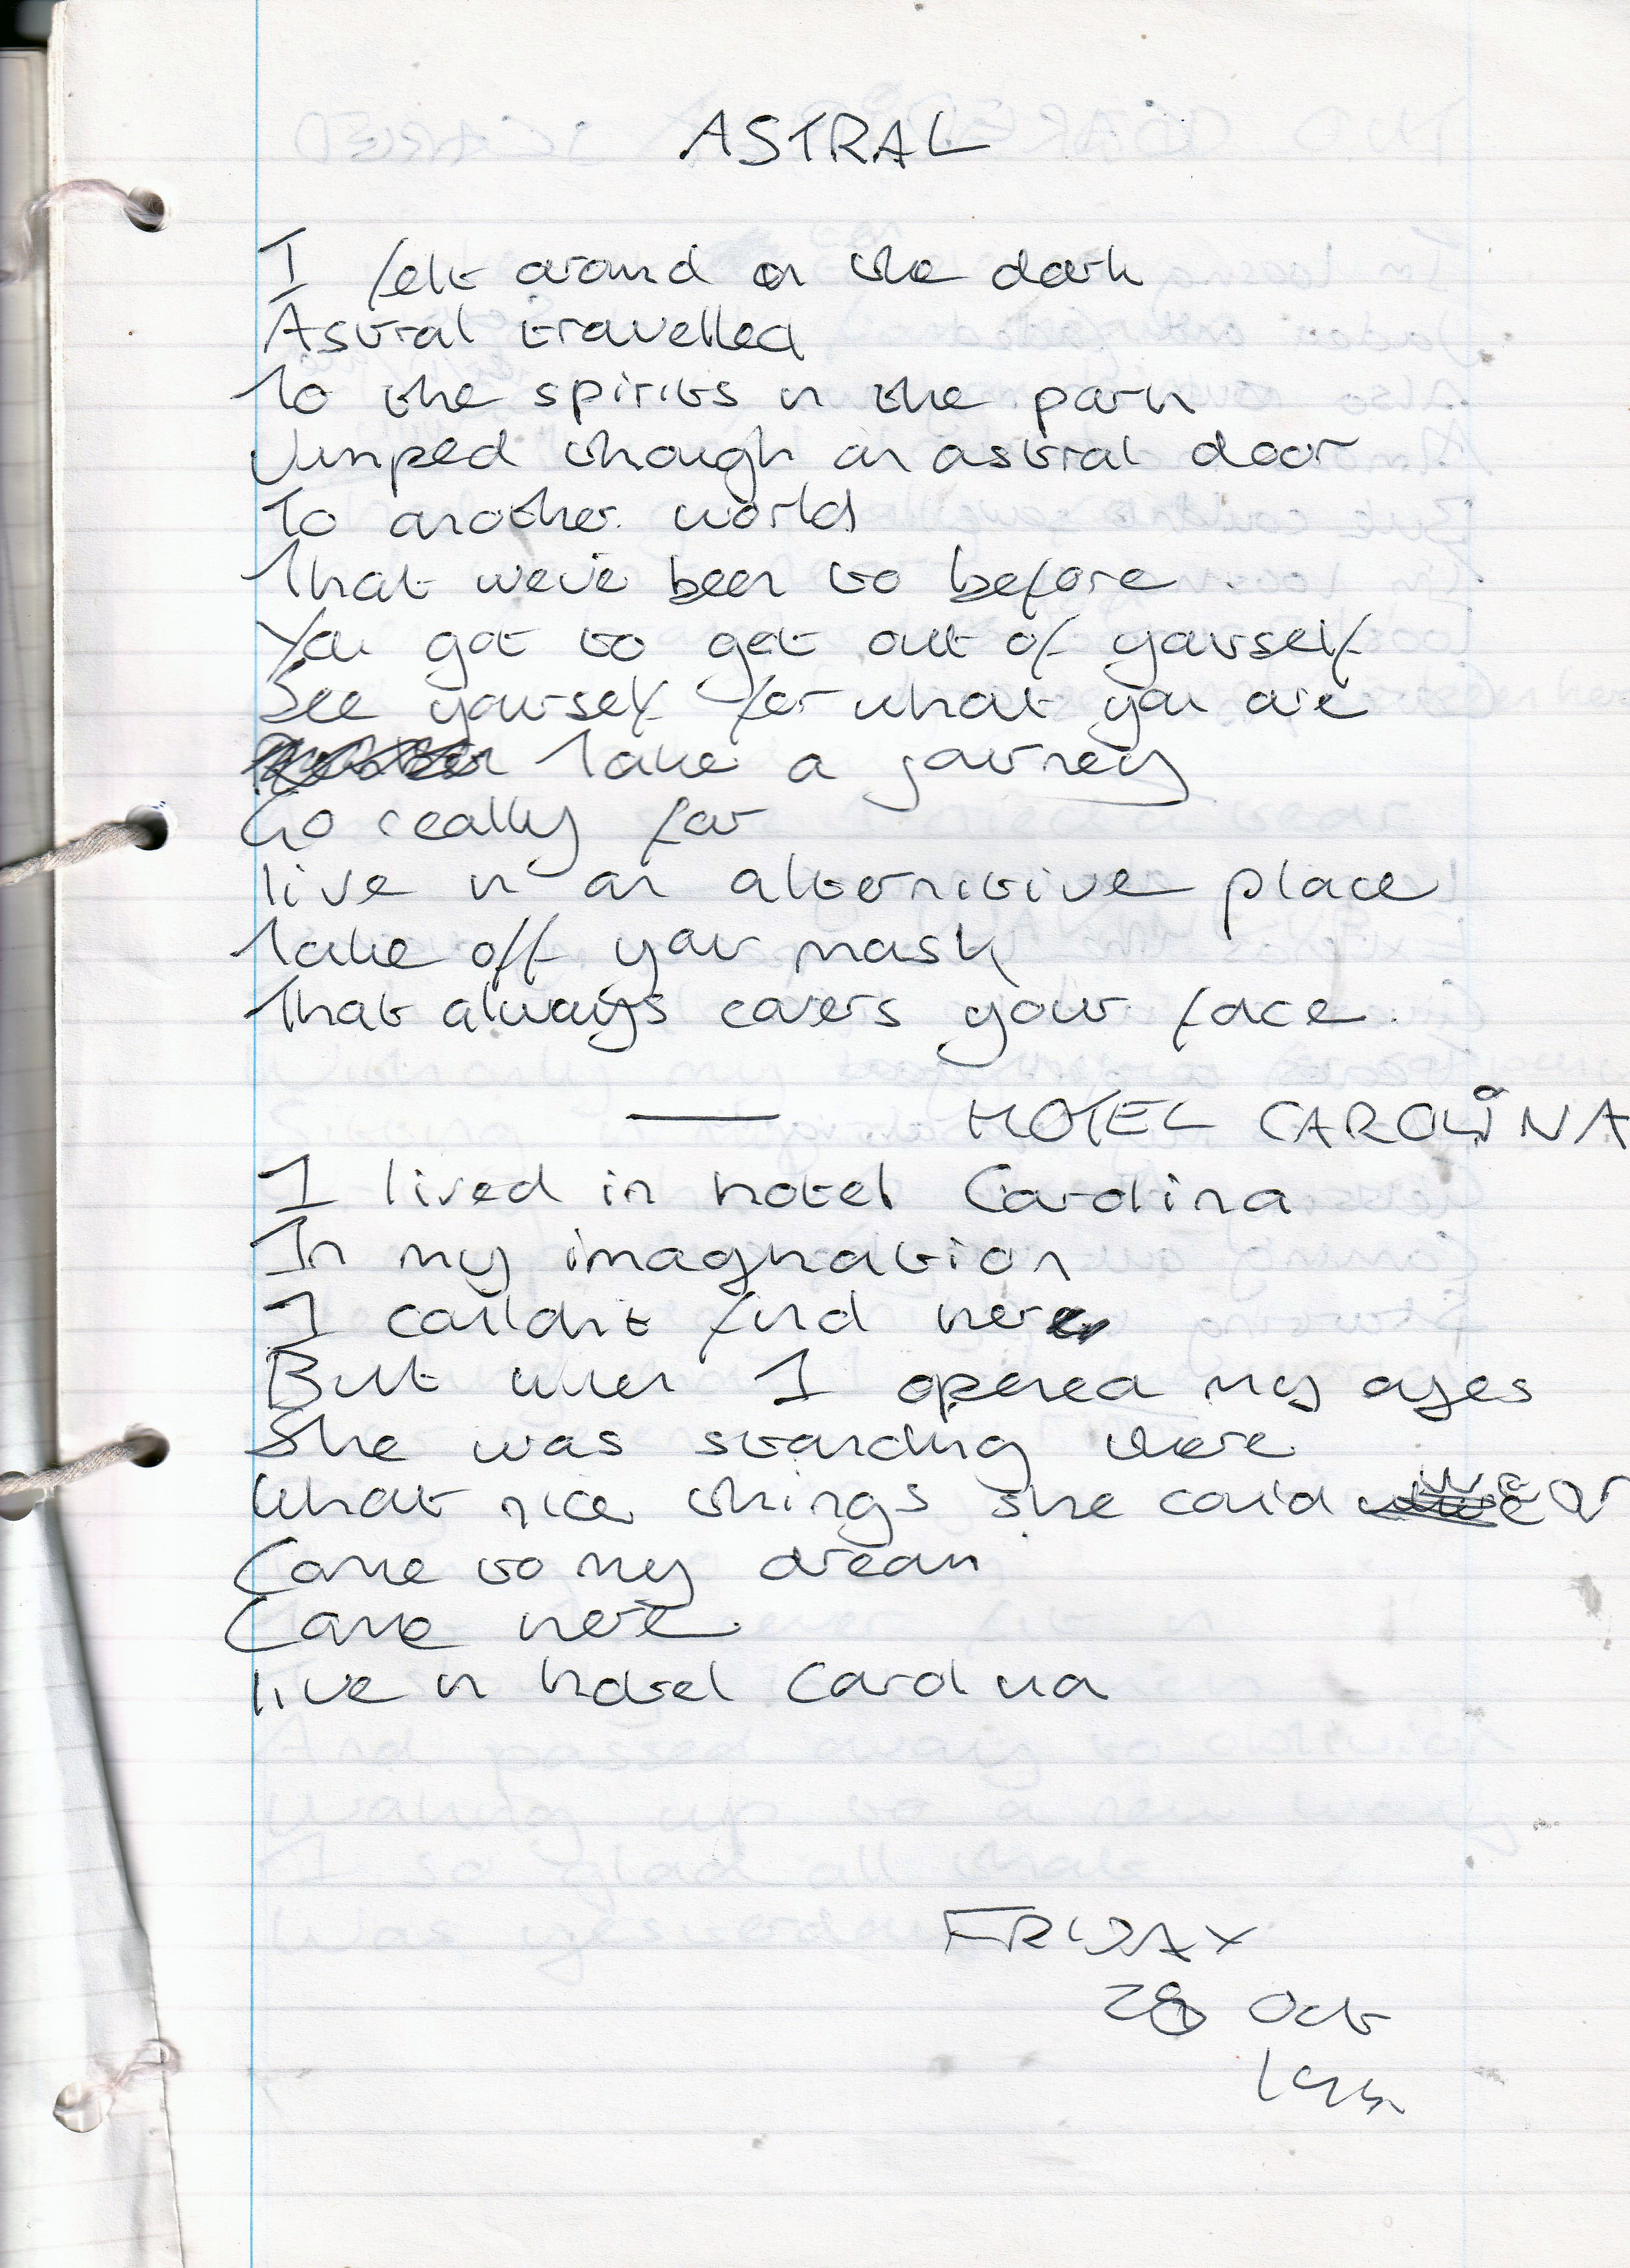 ASTRAL
I felt around in the dark
Astral travelled
To the spirits in the park
Jumped though an astral door
To another world
That we've been to before.
You got to get out of yourself
See yourself for what you are
Take a journey
Go really far
live in an alternitive place
Take off your mask
That always covers your face.
HOTEL CAROLINA
I lived in hotel Carolina
In my imagination
I couldn't find her
But when I opened my eyes
She was standing there
What nice things she said
Come to my dream
Come here
live in hotel Carolina
FRIDAY
28 Oct